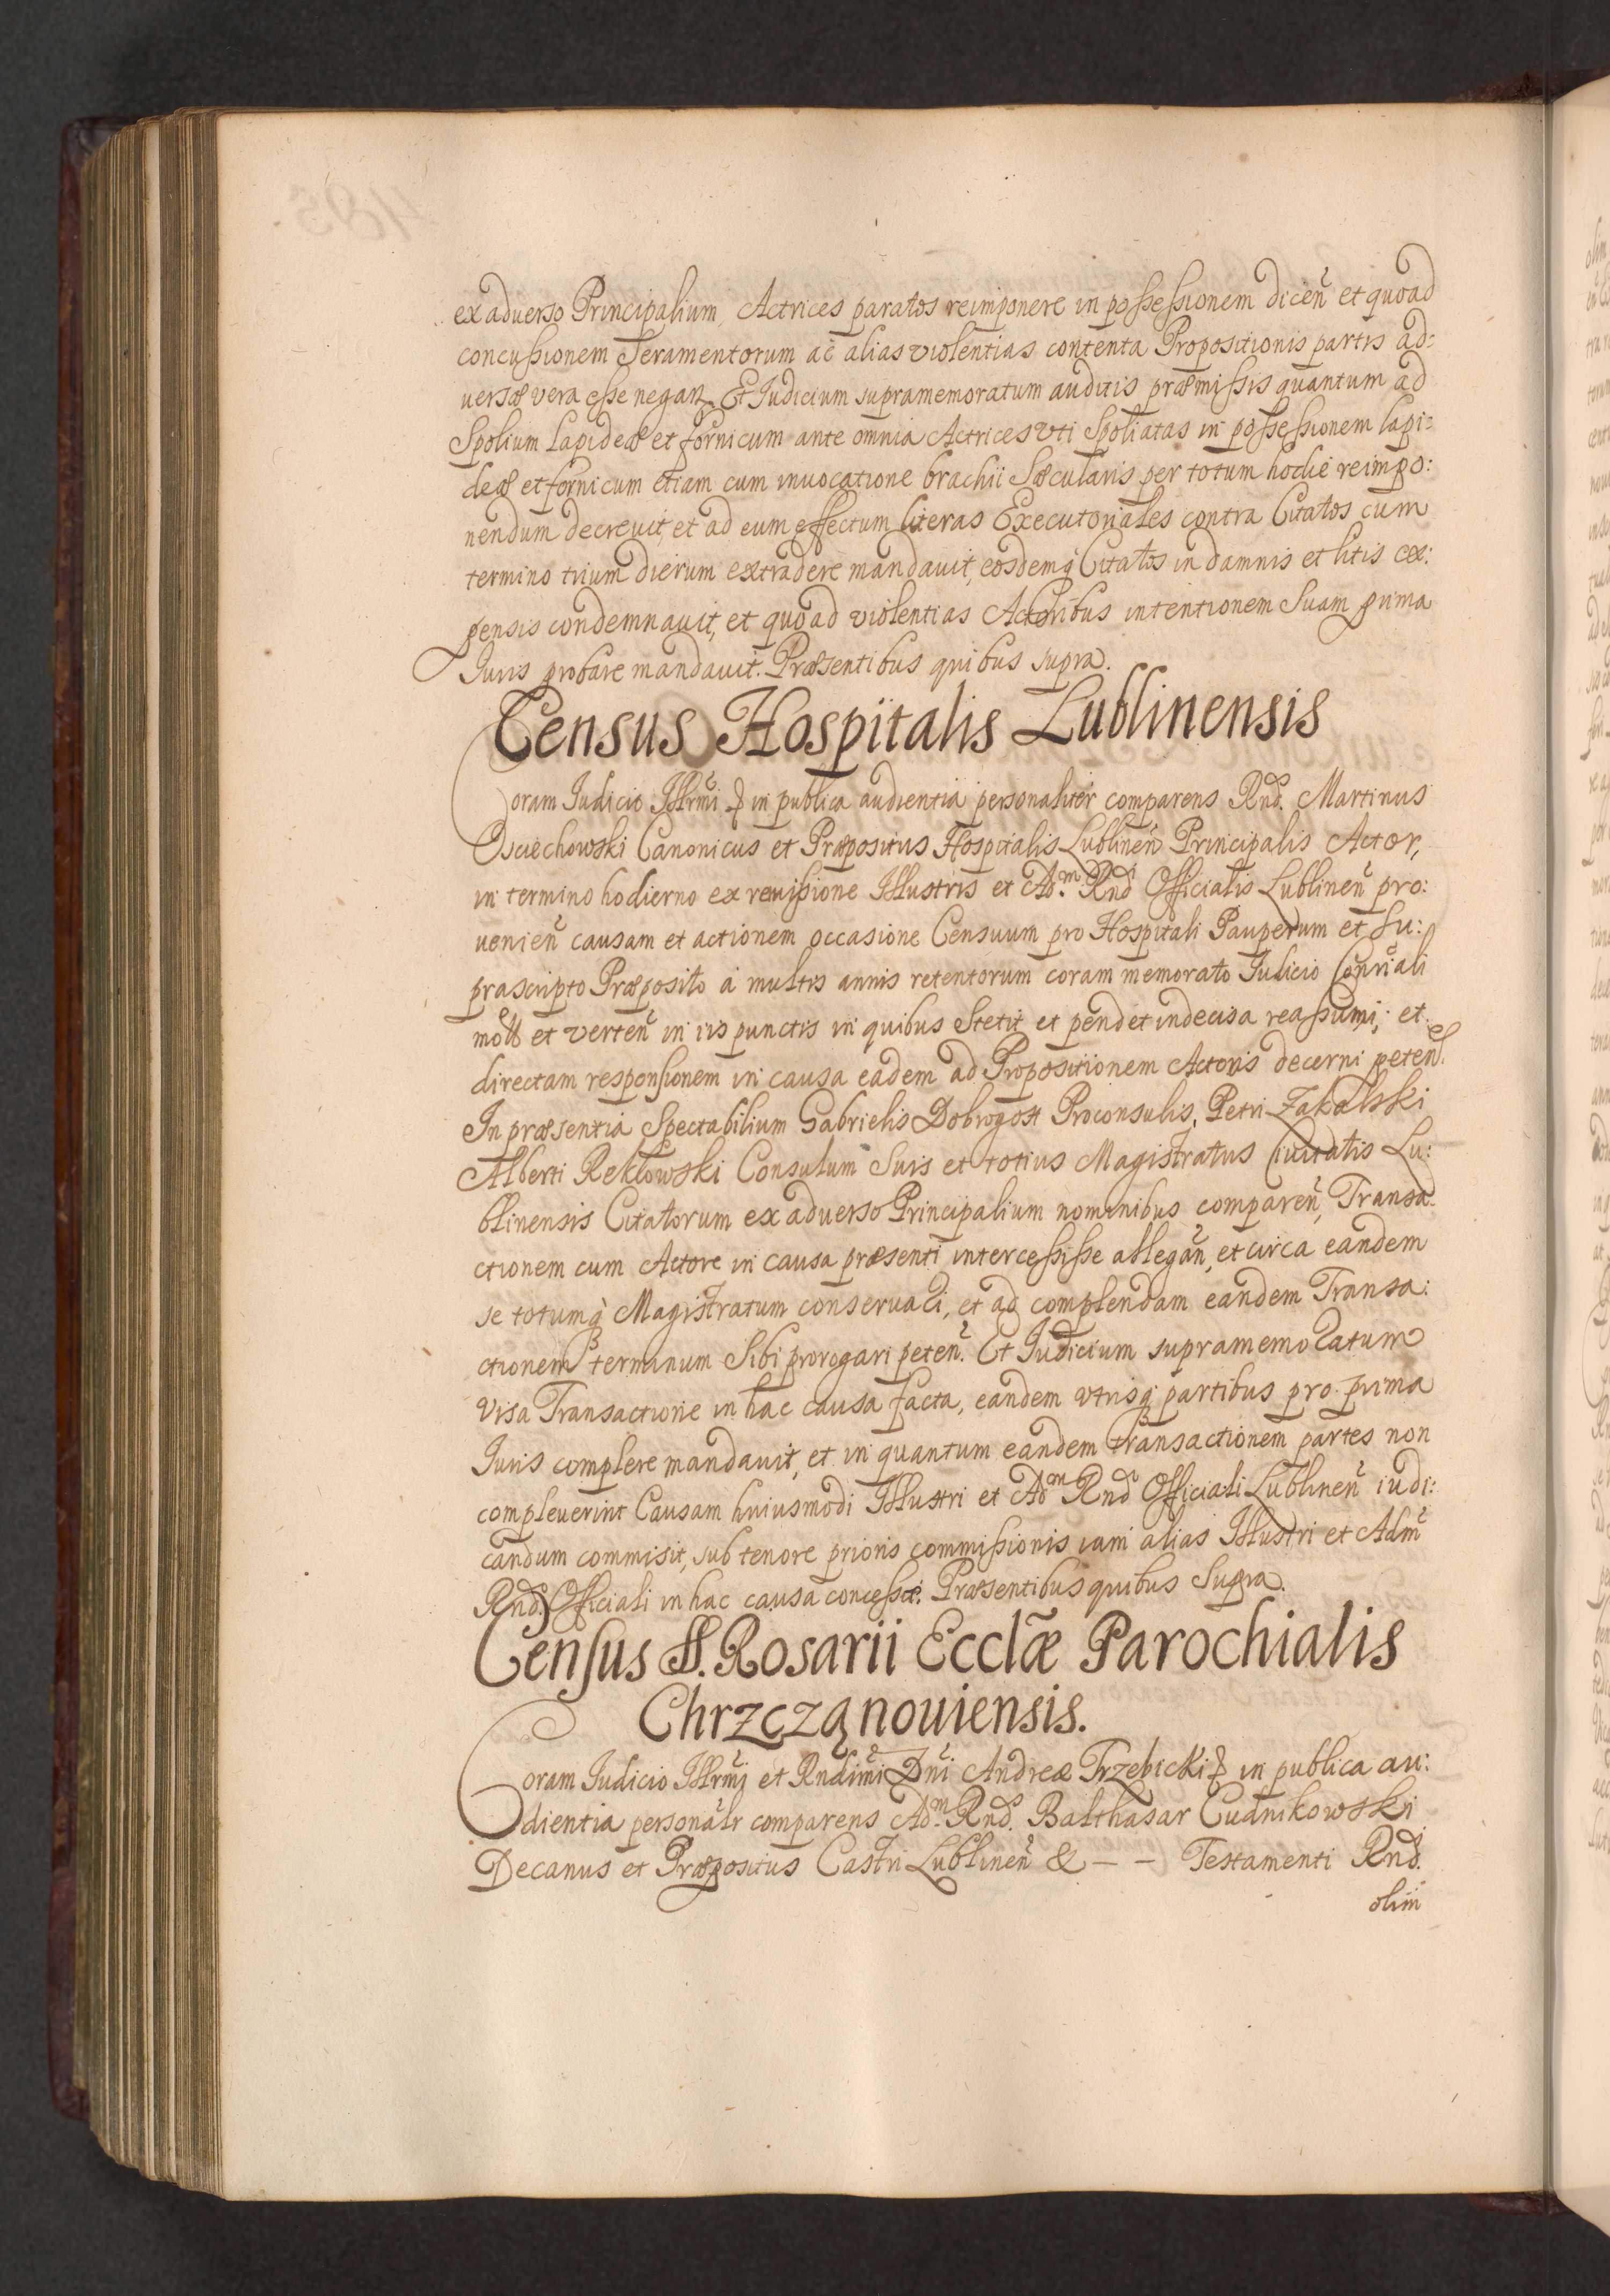 ex aduerso Principalium, Actrices paratos reimponere in possessionem dicen̄ et quoad
concussionem Seramentorum ac̄ alias violentias contenta Propositionis partis ad:
uersæ vera esse negan̄. Et Iudicium supramemoratum auditis præmissis quantum ad
Spolium Lapideæ et fornicum ante omnia Actrices vti Spoliatas in possessionem lapi:
deæ et fornicum etiam cum inuocatione brachii Sæcularis per totum hodie reimpo:
nendum decreuit, et ad eum effectum literas Executoriales contra Citatos cum
termino trium dierum extradere mandauit, eosdemq̀ Citatos in damnis et litis ex:
pensis condemnauit, et quoad violentias Actoribus intentionem Suam prima
Iuris probare mandauit. Præsentibus quibus supra.
Census Hospitalis Lublinensis
Coram Iudicio Illrmi & in publica audientia personaliter comparens Rnd. Martinus
Osciechowski Canonicus et Præpositus Hospitalis Lublinen̄ Principalis Actor,
in termino hodierno ex remissione Illustris et Ad.m Rndi Officialis Lublinen̄ pro:
uenien̄ causam et actionem occasione Censuum pro Hospitali Pauperum et Su:
prascripto Præposito à multis annis retentorum coram memorato Iudicio
et verten̄ in iis punctis in quibus Stetit et pendet indecisa reassumi; et
directam responsionem in causa eadem ad Propositionem Actoris decerni peten̄.
In præsentia Spectabilium Gabrielis Dobrogost Proconsulis, Petri Zakalski
Alberti Reklowski Consulum Suis et totius Magistratus Ciuitatis Lu:
blinensis Citatorum ex aduerso Principalium nominibus comparen̄, Transa:
ctionem cum Actore in causa præsenti intercessisse allegan̄, et circa eandem
se totumq̀ Magistratum conseruari, et ad complendam eandem Transa:
ctionem terminum Sibi prorogari peten̄. Et Iudicium supramemoratum
visa Transactione in hac causa facta, eandem vtrisq̀ partibus pro prima
Iuris complere mandauit, et in quantum eandem transactionem partes non
compleuerint Causam huiusmodi Illustri et Ad.m Rndo Officiali Lublinen̄ iudi:
candum commisit, sub tenore prioris commissionis iam alias Illustri et Adm̄
Rndo. Officiali in hac causa concessæ. Præsentibus quibus Supra.
Census SS. Rosarii Ecclæ Parochialis
Chrzcząnouiensis.
Coram Iudicio Illrmi et Rndimi Dni Andreæ Trzebicki & in publica au:
dientia personalr comparens Ad.m Rnd. Balthasar Cudnikowski
Decanus et Præpositus Castri Lublinen̄ & – – Testamenti Rnd.
olim